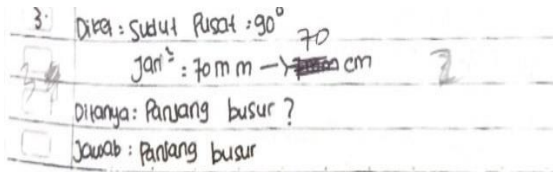 3. Diket : Sudut Pusat : 90°
Jari² : 70 mm → 70 cm
Ditanya : Panjang busur ?
Jawab : Panjang busur